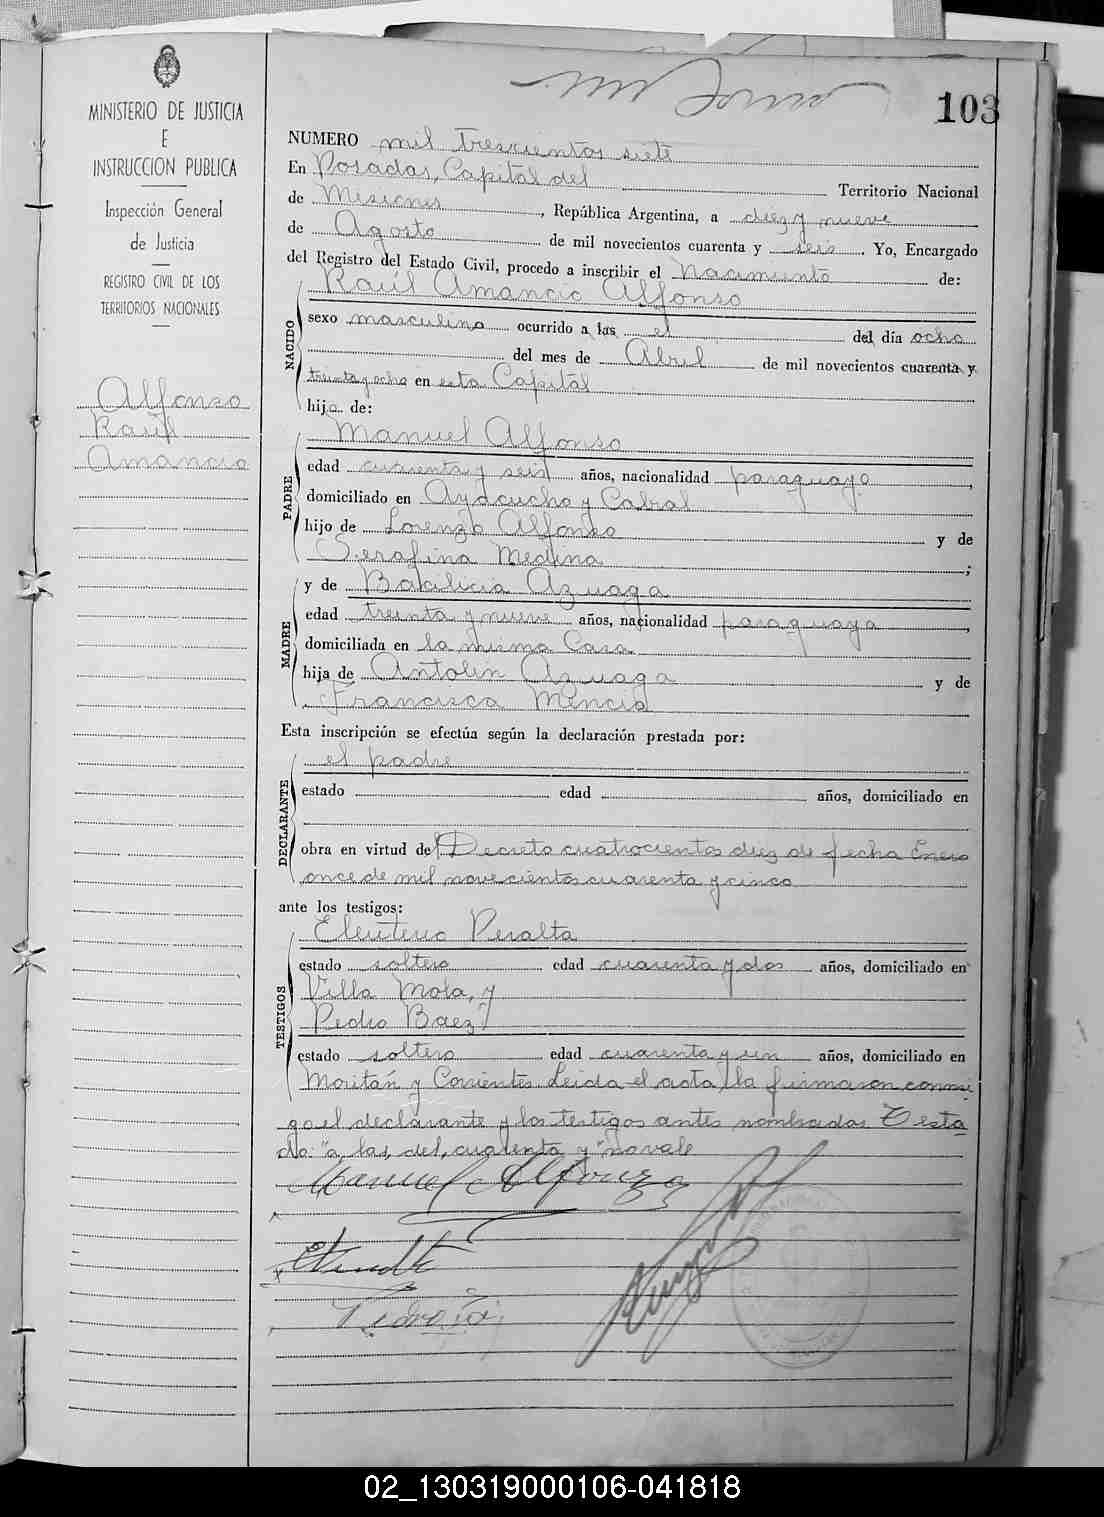 103
MINISTERIO DE JUSTICIA
E
INSTRUCCION PUBLICA
Inspección General
de Justicia
REGISTRO CIVIL DE LOS
TERRITORIOS NACIONALES
Alfonso
Raúl
Amancio
NUMERO mil trescientos siete
En Posadas, Capital del Territorio Nacional
de Misiones, República Argentina, a diez y nueve
de Agosto de mil novecientos cuarenta y seis. Yo, Encargado
del Registro del Estado Civil, procedo a inscribir el Nacimiento de:
NACIDO
Raúl Amancio Alfonso
sexo masculino ocurrido a las el del día ocho
del mes de Abril de mil novecientos cuarenta y
treinta y ocho en esta Capital
hijo de:
PADRE
Manuel Alfonso
edad cuarenta y seis años, nacionalidad paraguayo,
domiciliado en Ayacucho y Cabral
hijo de Lorenzo Alfonso y de
Serafina Medina;
y de Basilicia Azuaga
MADRE
edad treinta y nueve años, nacionalidad paraguaya,
domiciliada en la misma Casa
hija de Antolin Azuaga y de
Francisca Mencia
Esta inscripción se efectúa según la declaración prestada por:
DECLARANTE
el padre
estado edad años, domiciliado en
obra en virtud del Decreto cuatrocientos diez de fecha Enero
once de mil novecientos cuarenta y cinco
ante los testigos:
TESTIGOS
Eleuterio Peralta
estado soltero edad cuarenta y dos años, domiciliado en
Villa Mola, y
Pedro Baez
estado soltero edad cuarenta y un años, domiciliado en
Moritán y Corrientes. Leida el acta, la firmaron conmi
go el declarante y los testigos antes nombrados. Testa
do: "a, las, del, cuarenta y" no vale
Manuel Alfonzo
02_130319000106-041818